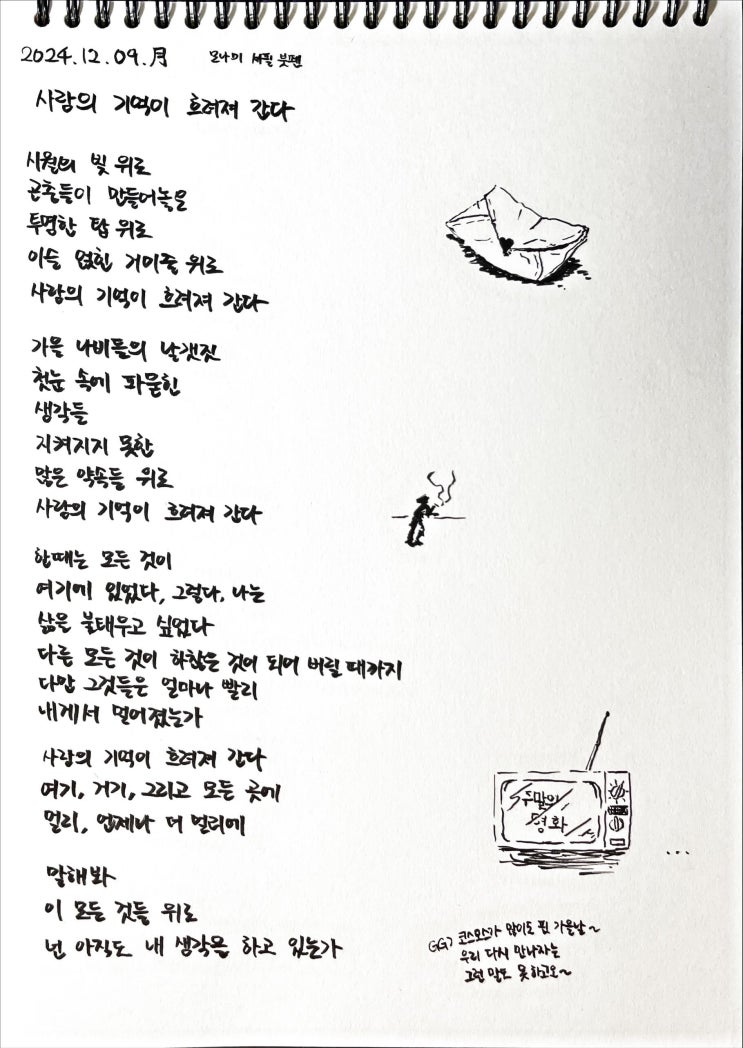 2024.12.09.月 모나미 세필 붓펜
사랑의 기억이 흐려져 간다
시월의 빛 위로
곤충들이 만들어놓은
투명한 탑 위로
이슬 얹힌 거미줄 위로
사랑의 기억이 흐려져 간다
가을 나비들의 날갯짓
첫눈 속에 파묻힌
생각들
지켜지지 못한
많은 약속들 위로
사랑의 기억이 흐려져 간다
한때는 모든 것이
여기에 있었다, 그렇다, 나는
삶을 불태우고 싶었다
다른 모든 것이 하찮은 것이 되어 버릴 때까지
다만 그것들은 얼마나 빨리
내게서 멀어졌는가
사랑의 기억이 흐려져 간다
여기, 거기, 그리고 모든 곳에
멀리, 언제나 더 멀리에
말해봐
이 모든 것들 위로
넌 아직도 내 생각을 하고 있는가
주말의
명화
...
코스모스가 많이도 핀 가을날~
우리 다시 만나자는
그런 말도 못 하고요~